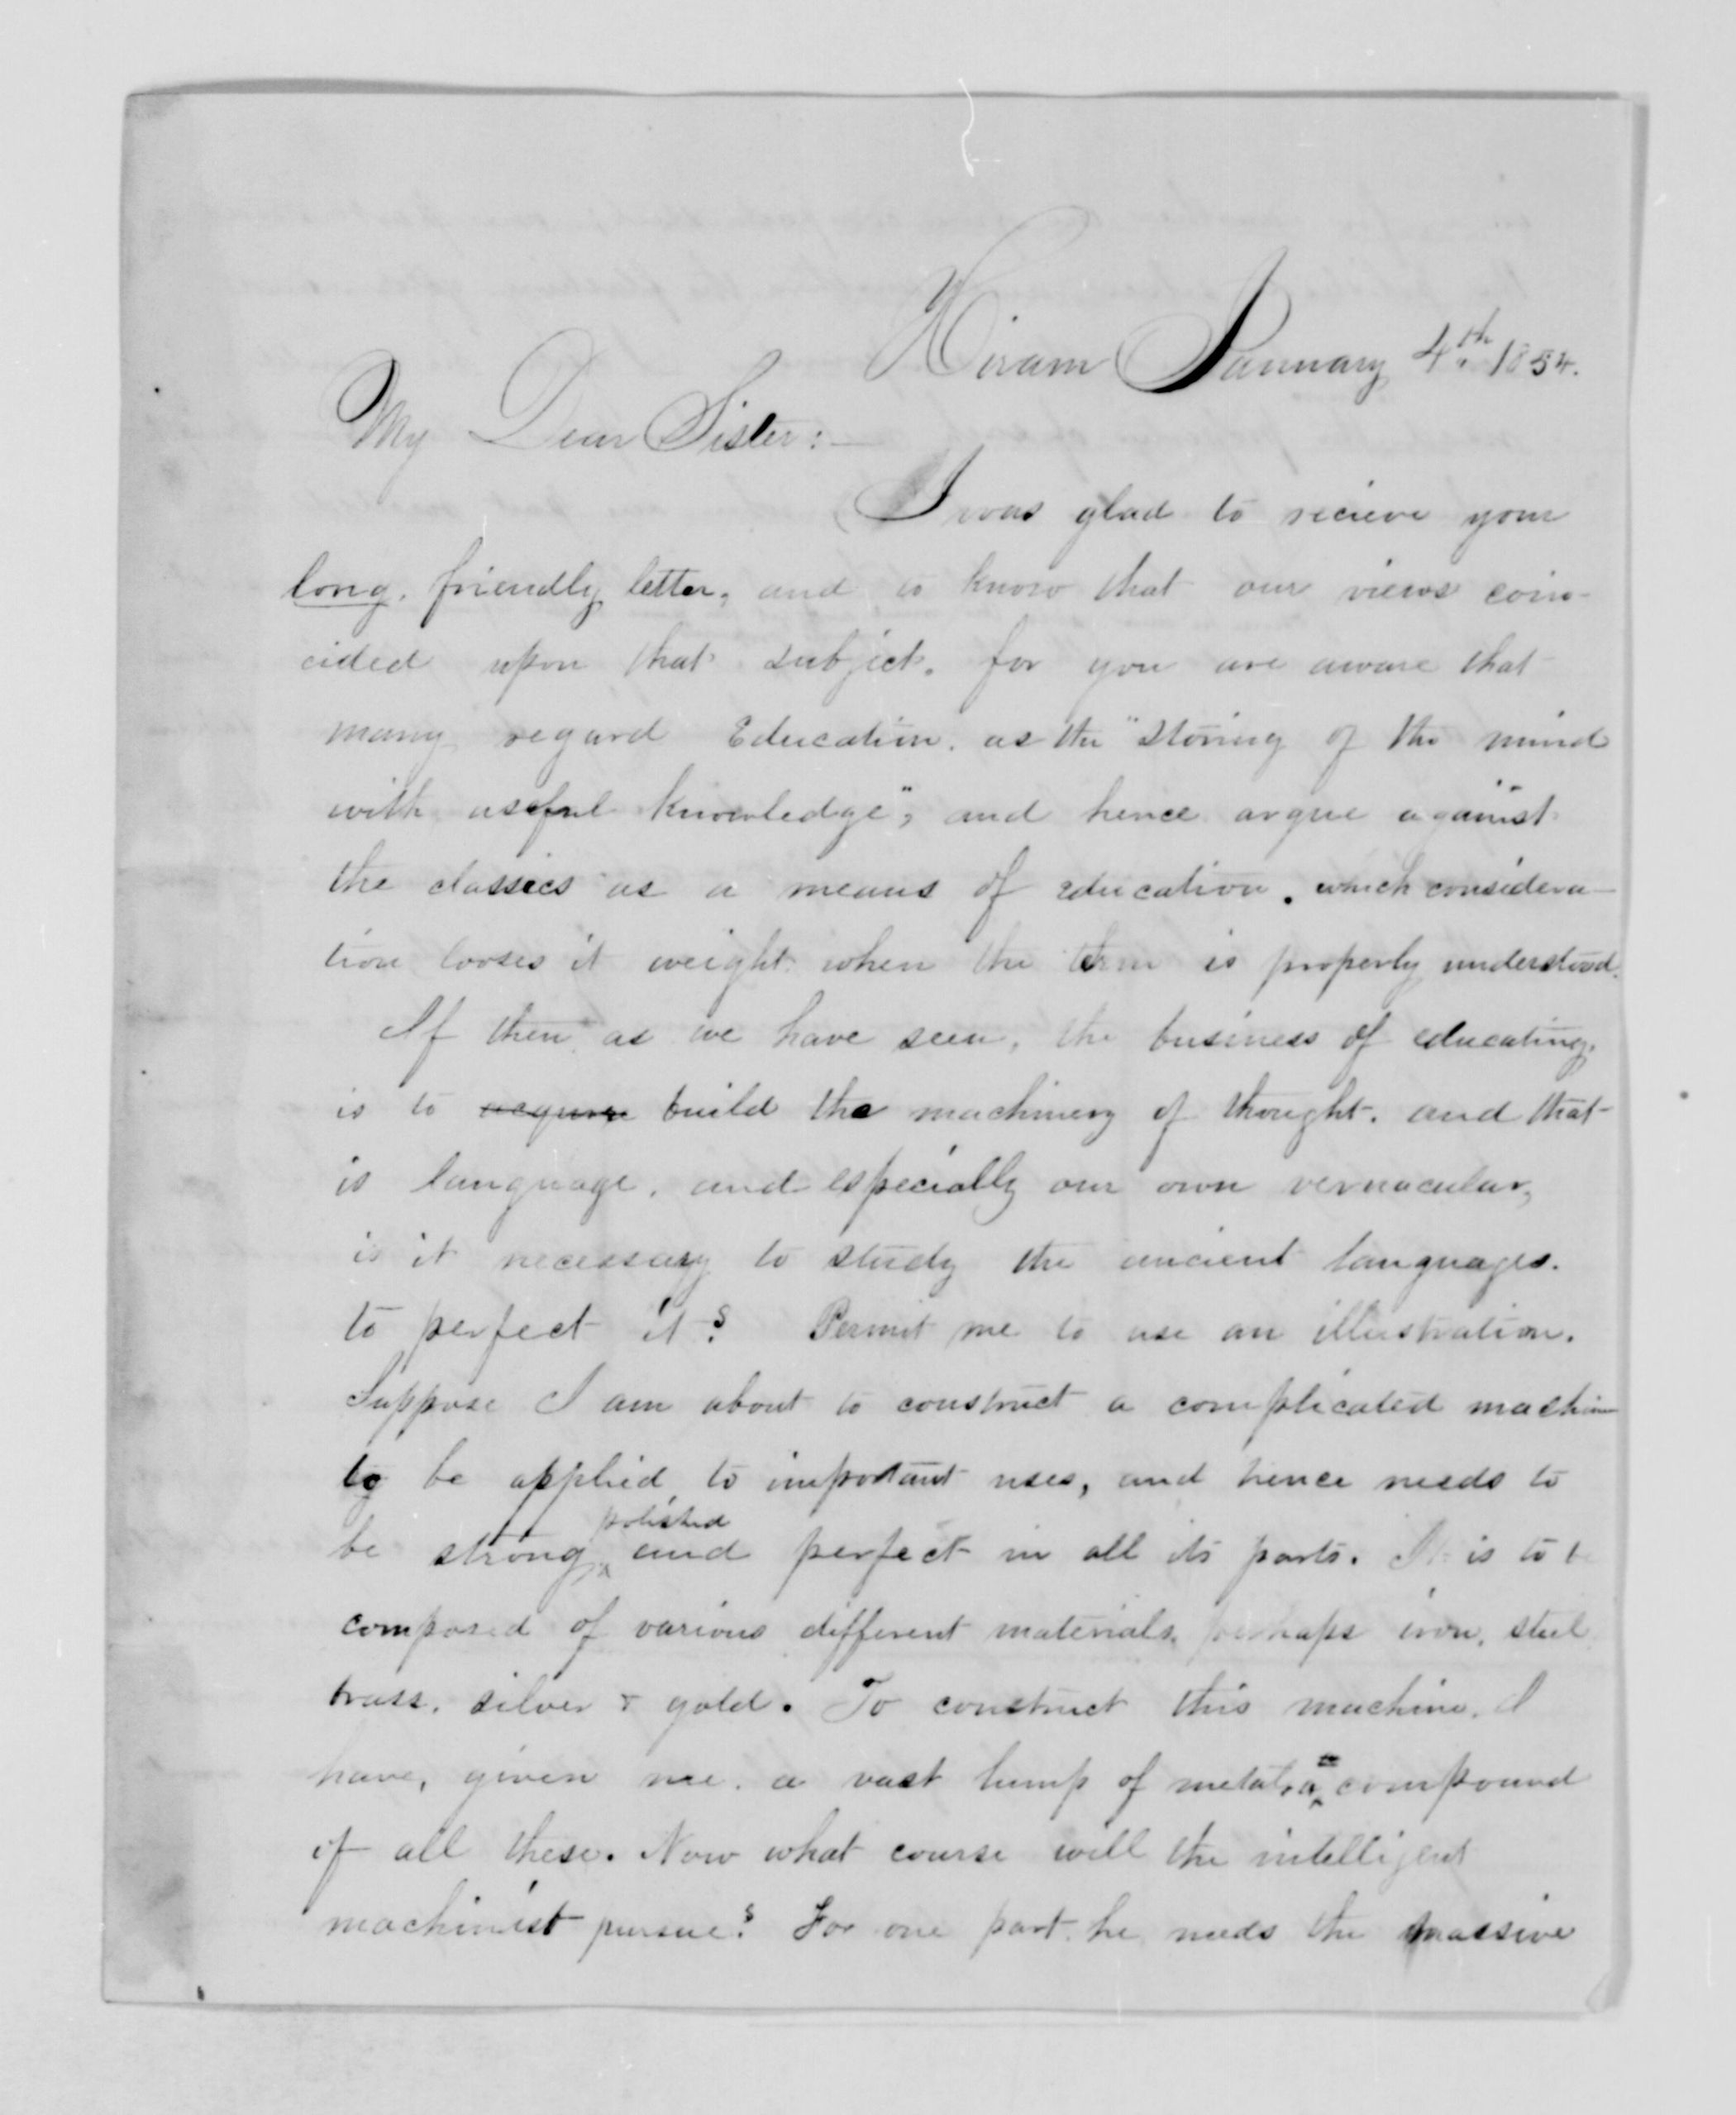 Hiram January 4th 1854.
My Dear Sister:—
I was glad to recieve your
long, friendly letter, and to know that our views coin-
cided upon that subject, for you are aware that
many regard Education, as the "storing of the mind
with useful knowledge", and hence argue against
the classics as a means of education, which considera-
tion looses it weight when the term is properly understood.
If then, as we have seen, the business of educating,
is to acquire build the machinery of thought, and that
is language, and especially our own vernacular,
is it necessary to study the ancient languages.
to perfect it? Permit me to use an illustration.
Suppose I am about to construct a complicated machine
to be applied to important uses, and hence needs to
be strong, polished and perfect in all its parts. It is to be
composed of various different materials, perhaps iron, steel
brass, silver & gold. To construct this machine, I
have, given me, a vast lump of metal, a compound
of all these. Now what course will the intelligent
machinist pursue? For one part he needs the massive